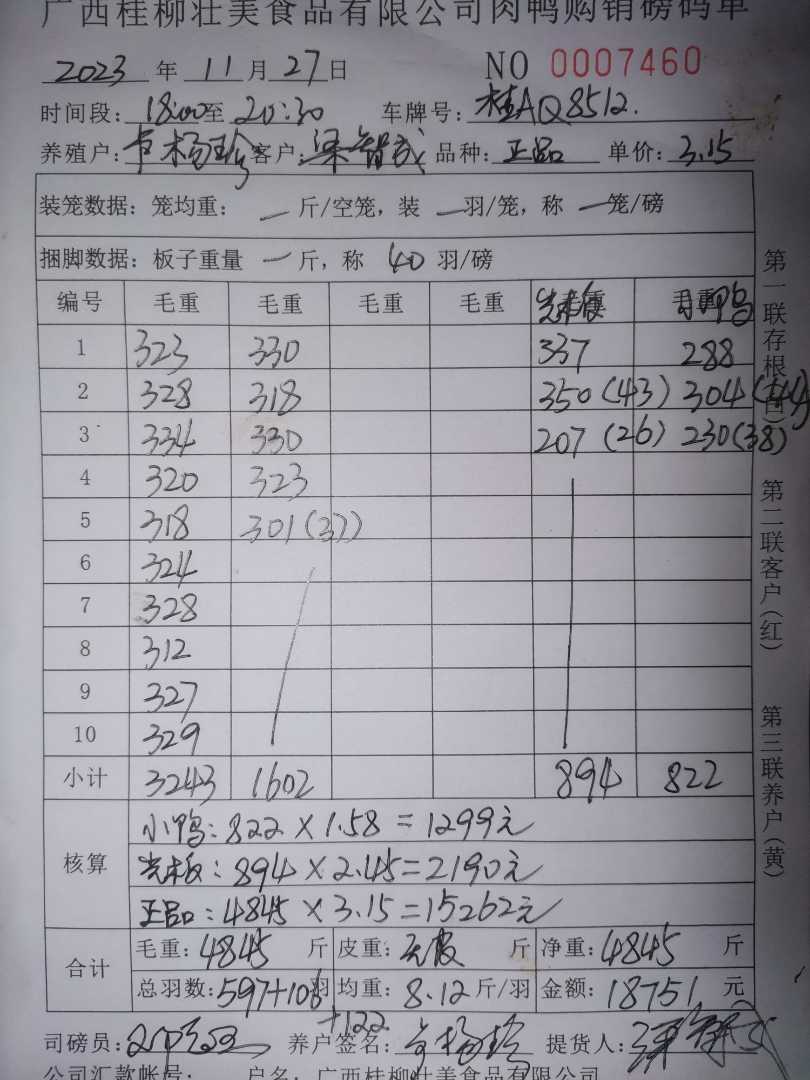 广西桂柳壮美食品有限公司肉鸭购销磅码单
2023 年 11 月 27 日 NO 0007460
时间段: 18:00至 20:30 车牌号: 桂AQ8512.
养殖户: 韦杨珍 客户: 梁智成 品种: 正品 单价: 3.15
装笼数据: 笼均重: — 斤/空笼, 装 — 羽/笼, 称 — 笼/磅
捆脚数据: 板子重量 — 斤, 称 40 羽/磅
编号 毛重 毛重 毛重 毛重 光板 小鸭
1 323 330 337 288
2 328 318 350(43) 304(44)
3 334 330 207(26) 230(38)
4 320 323
5 318 301(37)
6 324
7 328
8 312
9 327
10 329
小计 3243 1602 894 822
核算
小鸭: 822 × 1.58 = 1299元
光板: 894 × 2.45 = 2190元
正品: 4845 × 3.15 = 15262元
合计
毛重: 4845 斤 皮重: 无皮 斤 净重: 4845 斤
总羽数: 597+106羽 均重: 8.12 斤/羽 金额: 18751 元
+122
司磅员: 养户签名: 韦杨珍 提货人:
公司汇款帐号: 户名: 广西桂柳壮美食品有限公司
第一联存根(白)
第二联客户(红)
第三联养户(黄)